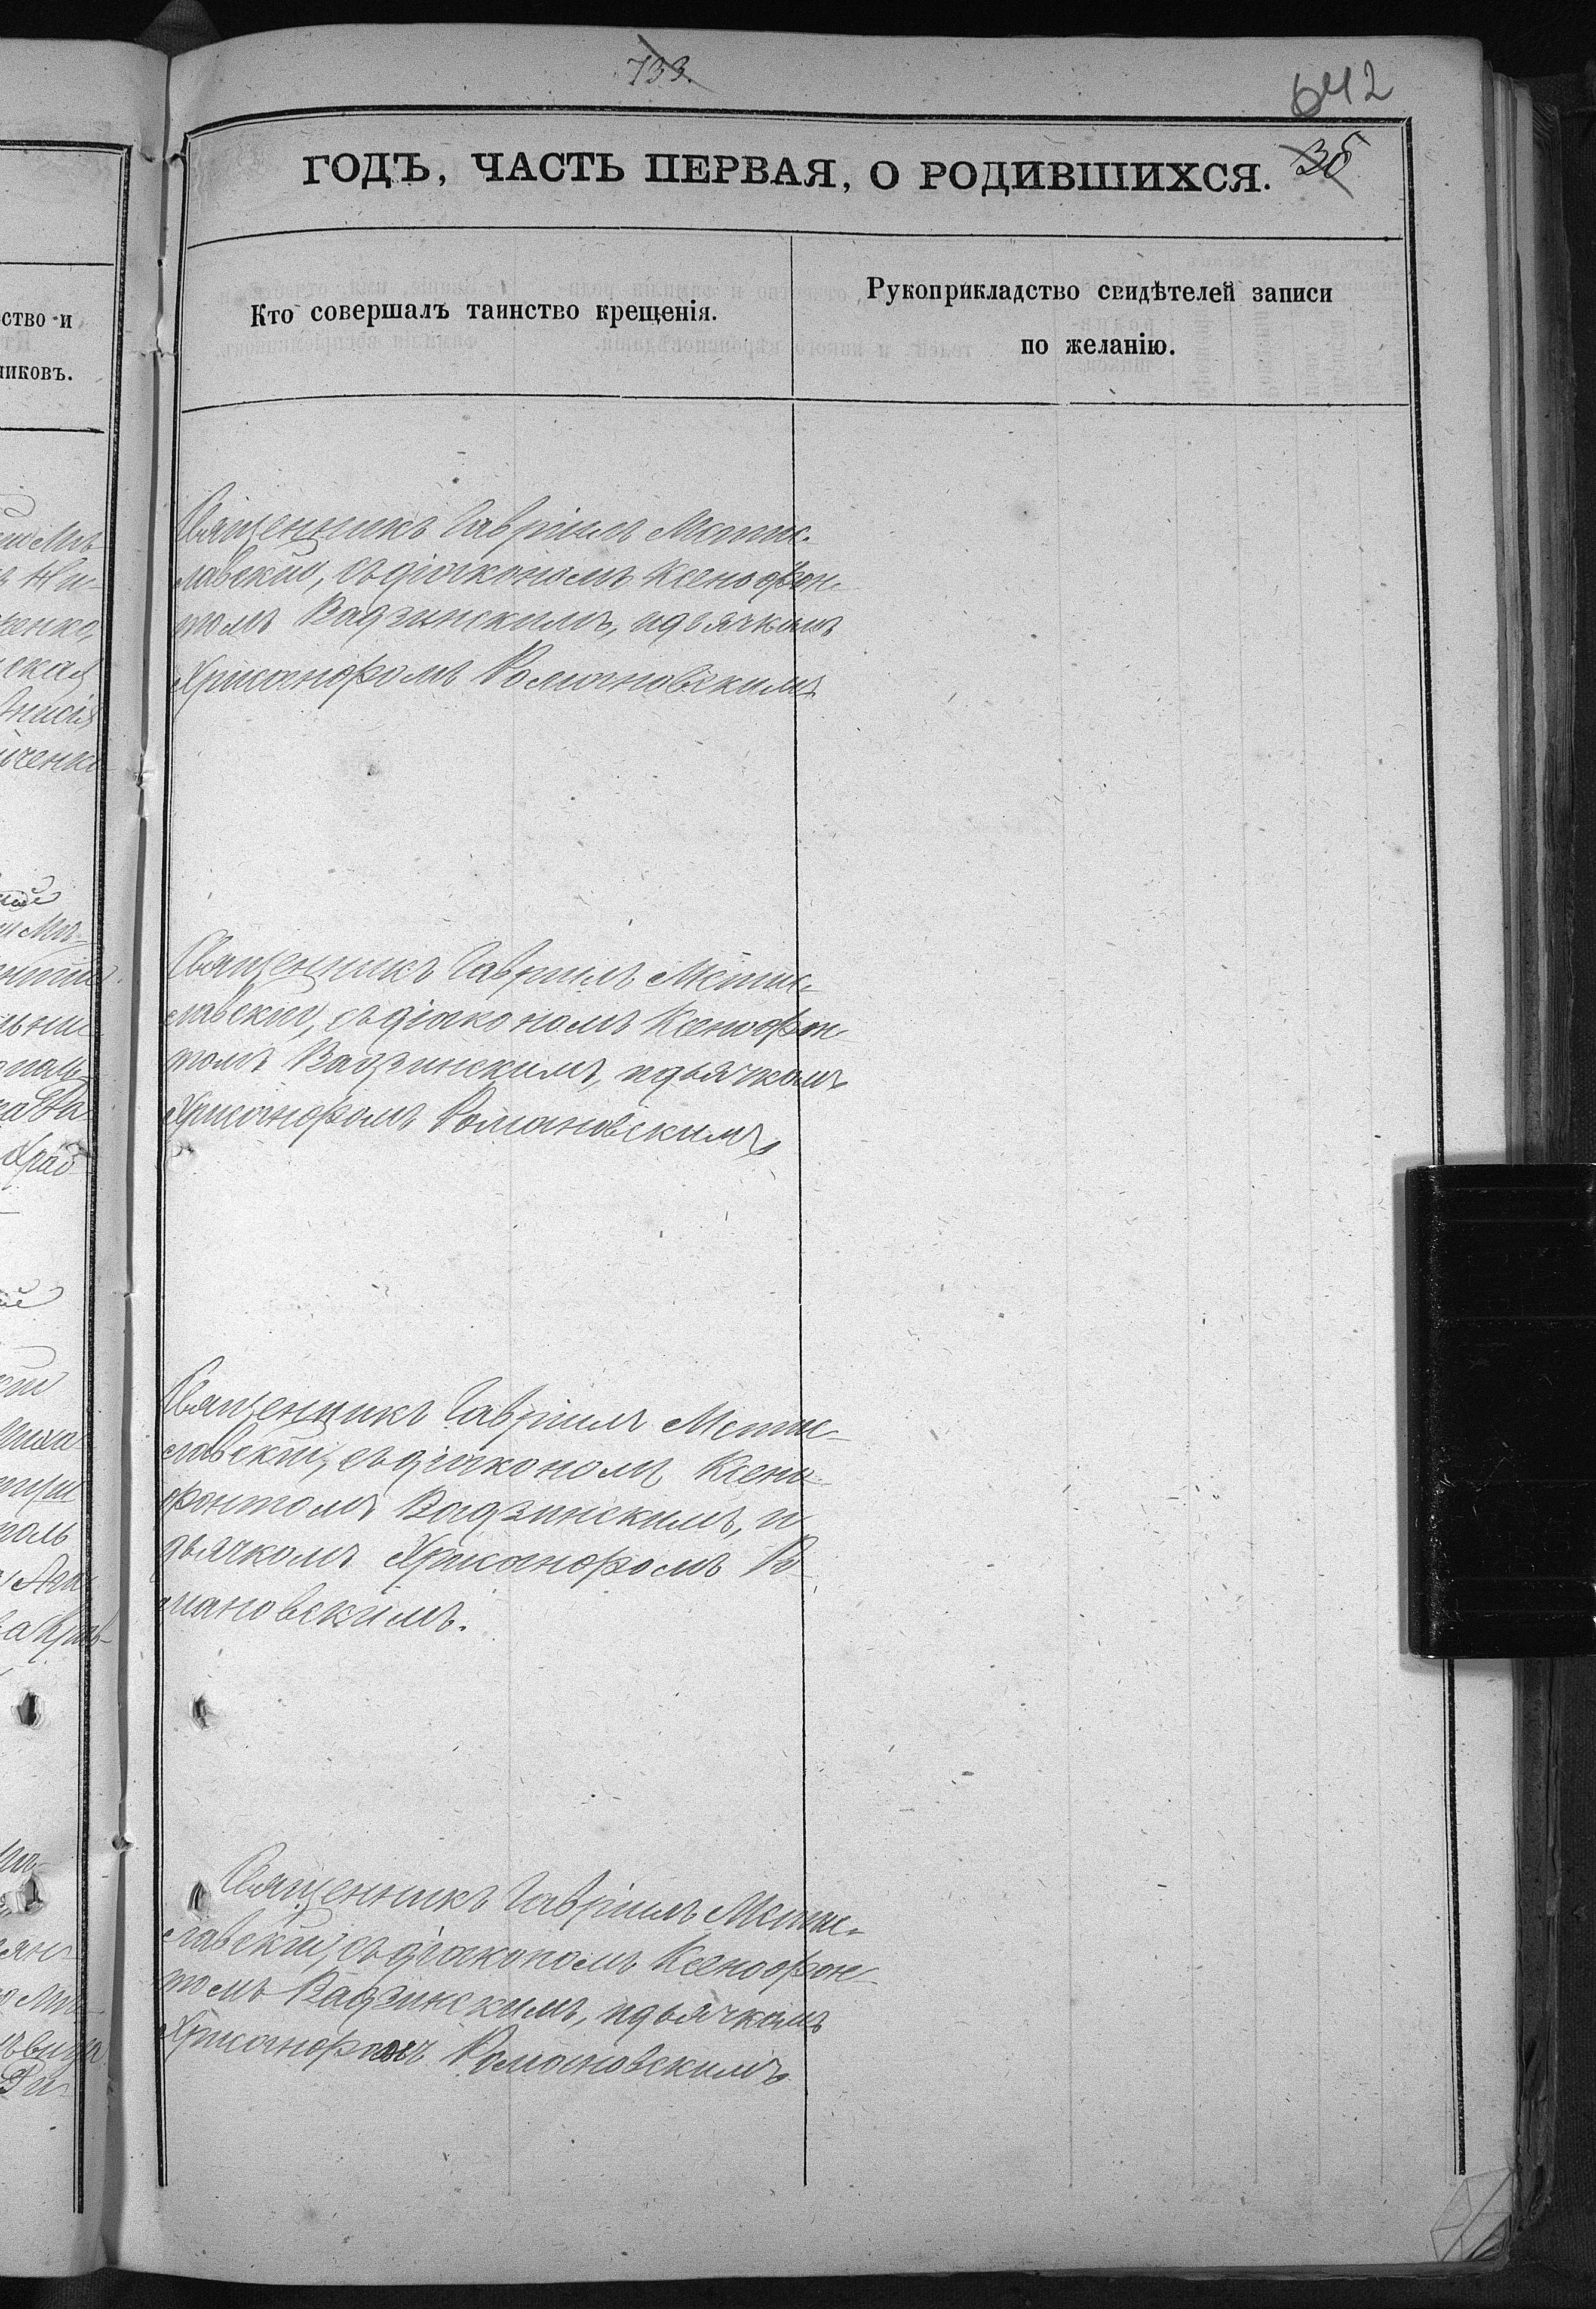 733.
642
ГОДЪ, ЧАСТЬ ПЕРВАЯ, О РОДИВШИХСЯ. 36
Кто совершалъ таинство крещенія.
Рукоприкладство свидѣтелей записи
по желанію.
ство и
никовъ.
Священникъ Гавріилъ Мстис-
лавскій, съ діакономъ Ксенофон-
томъ Вадзинскимъ, и дьячкомъ
Хрисанфомъ Романовскимъ
Священникъ Гавріилъ Мстис-
лавскій, съ діакономъ Ксенофон-
томъ Вадзинскимъ, и дьячкомъ
Хрисанфомъ Романовскимъ
Священникъ Гавріилъ Мстис-
лавскій, съ діакономъ Ксено-
фонтомъ Вадзинскимъ, и
дьячкомъ Хрисанфомъ Ро-
мановскимъ.
Священникъ Гавріилъ Мстис-
лавскій, съ діакономъ Ксенофон-
томъ Вадзинскимъ, и дьячкомъ
Хрисанфомъ Романовскимъ